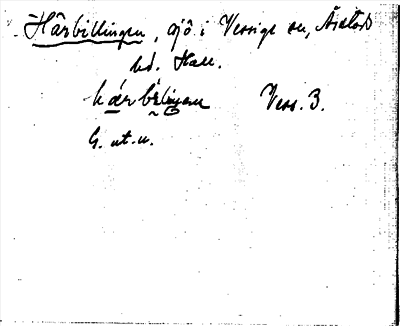 Hårbillingen, sjö i Vessige sn, Årstads
hd. Hall.
hårbiliŋen Vess. 3.
G. ut. u.